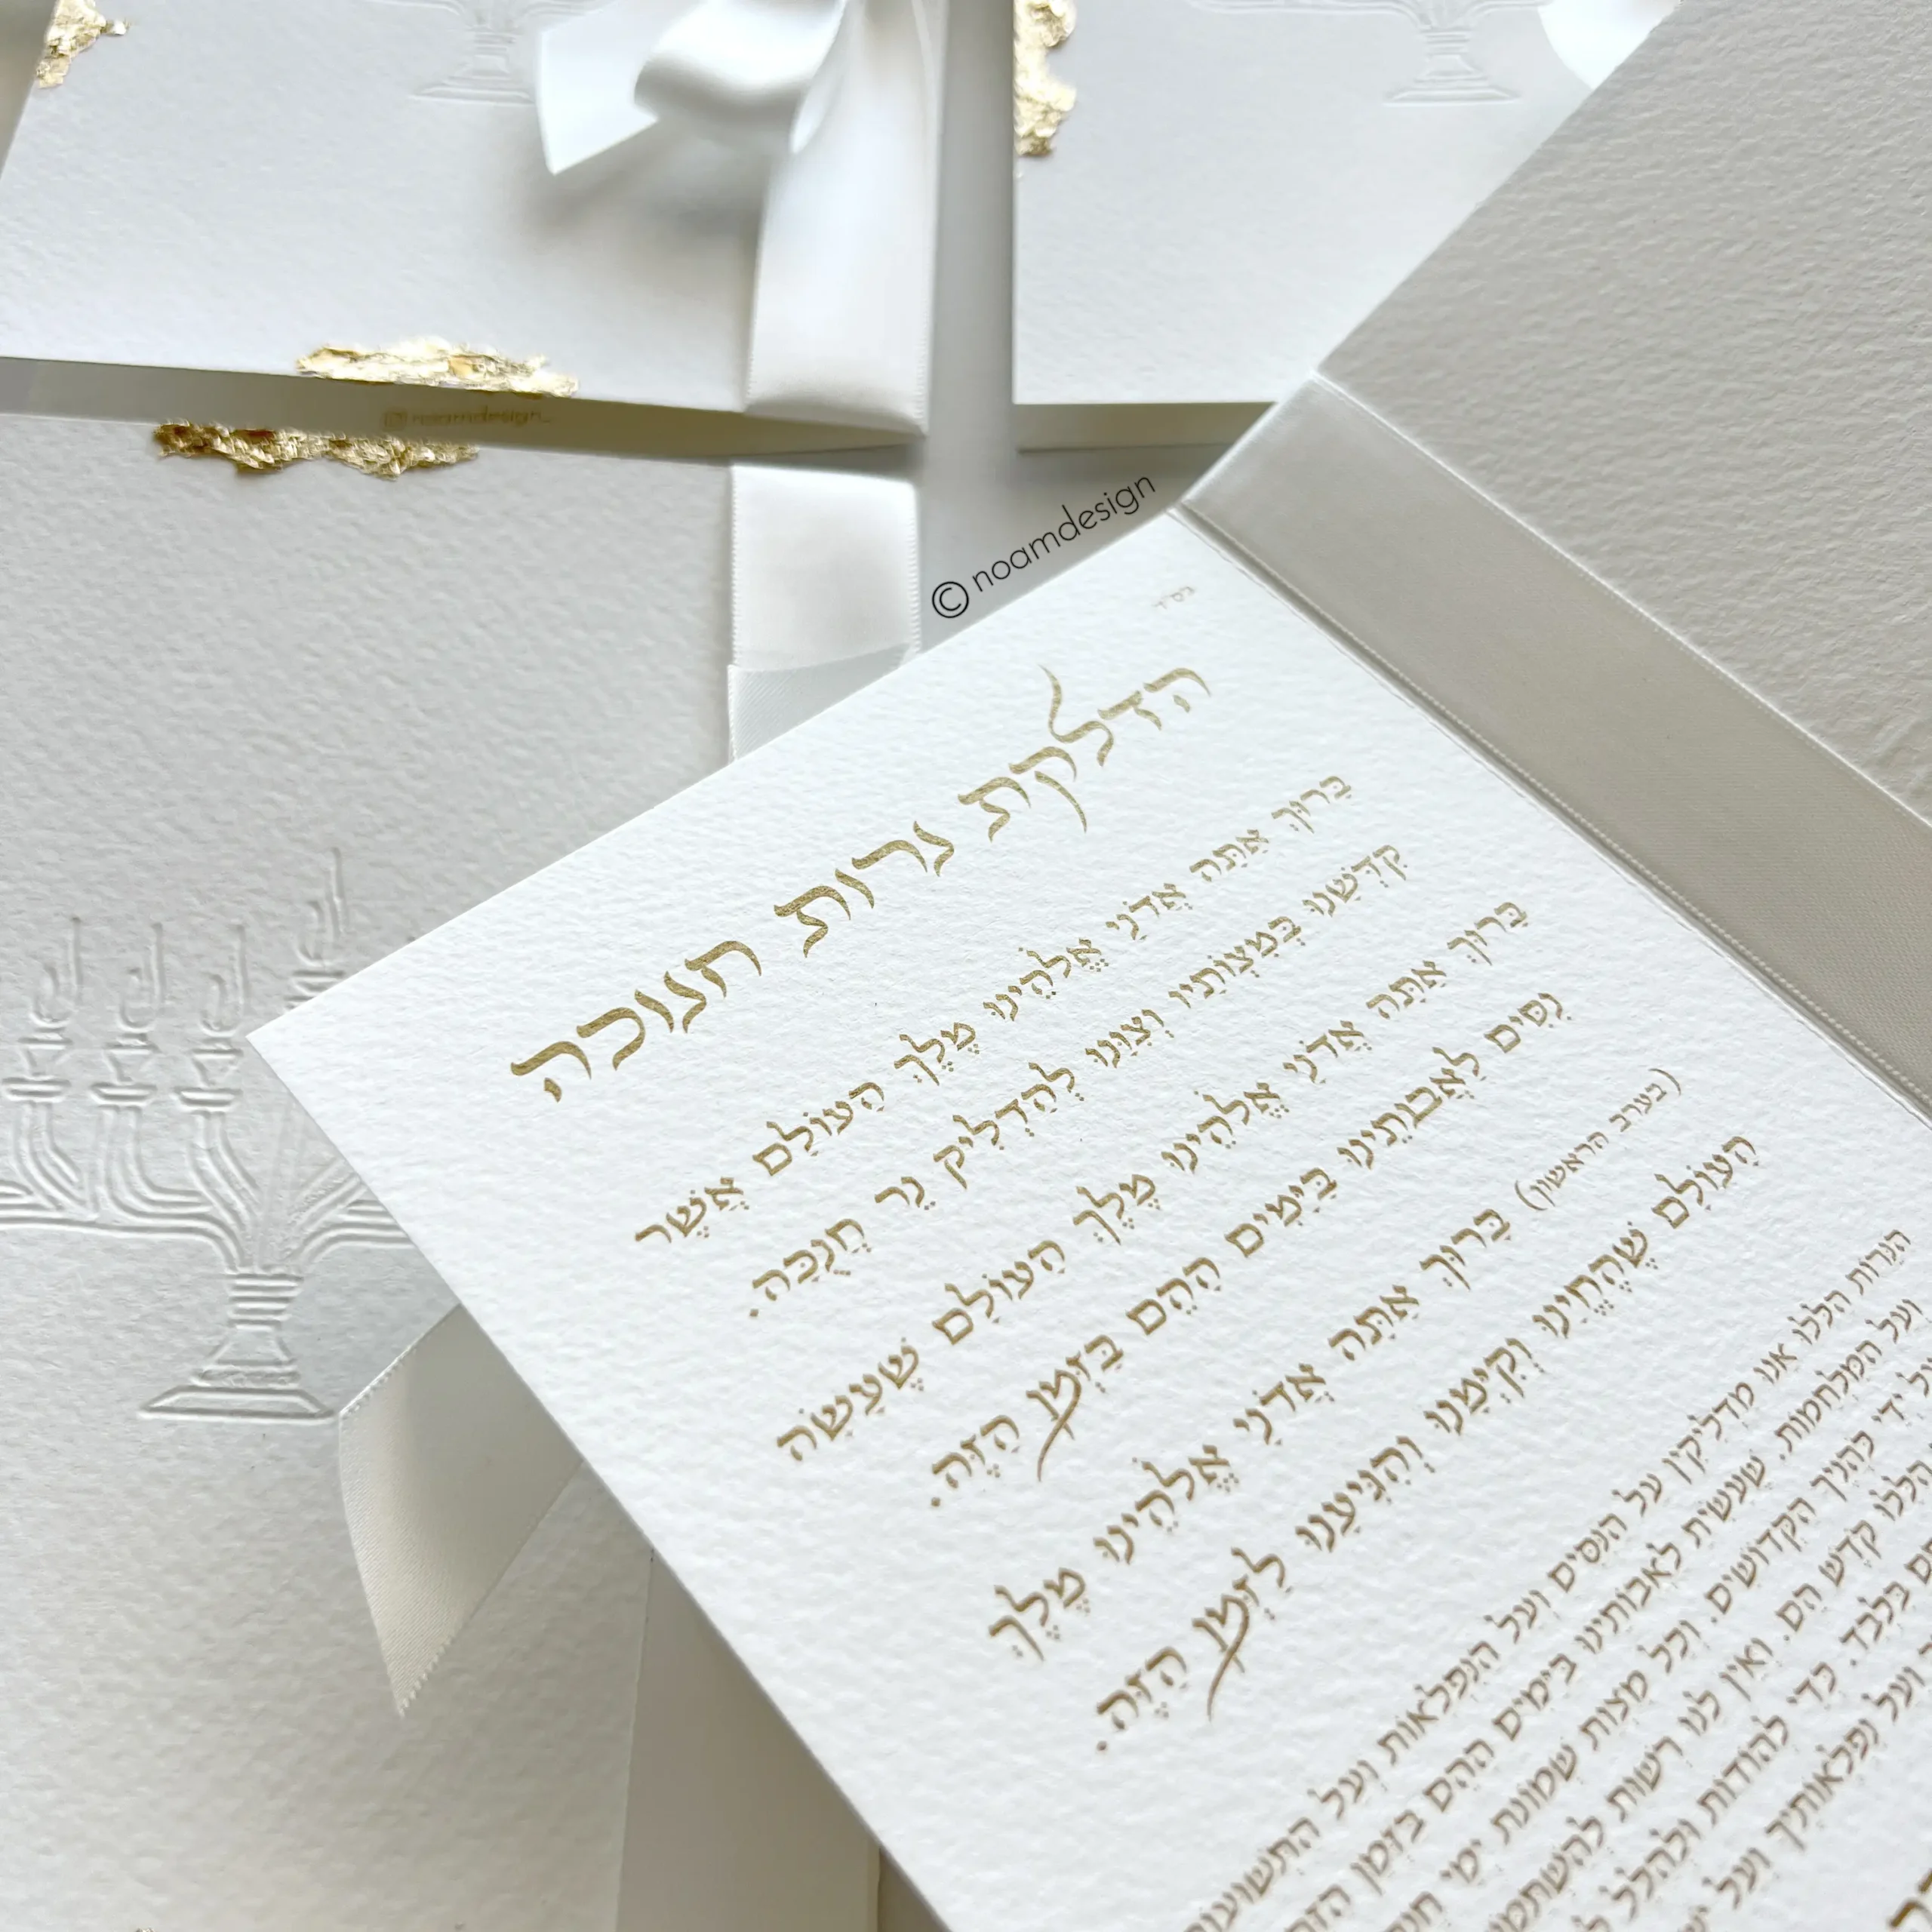 @noamdesign_
© noamdesign
בס"ד
הדלקת נרות חנוכה
בָּרוּךְ אַתָּה אֲדֹנָי אֱלֹהֵינוּ מֶלֶךְ הָעוֹלָם אֲשֶׁר
קִדְּשָׁנוּ בְּמִצְוֹתָיו וְצִוָּנוּ לְהַדְלִיק נֵר חֲנֻכָּה.
בָּרוּךְ אַתָּה אֲדֹנָי אֱלֹהֵינוּ מֶלֶךְ הָעוֹלָם שֶׁעָשָׂה
נִסִּים לַאֲבוֹתֵינוּ בַּיָּמִים הָהֵם בַּזְּמַן הַזֶּה.
(בערב הראשון) בָּרוּךְ אַתָּה אֲדֹנָי אֱלֹהֵינוּ מֶלֶךְ
הָעוֹלָם שֶׁהֶחֱיָנוּ וְקִיְּמָנוּ וְהִגִּיעָנוּ לַזְּמַן הַזֶּה.
הנרות הללו אנו מדליקין על הנסים ועל הנפלאות ועל התשועות
ועל המלחמות. שעשית לאבותינו בימים ההם בזמן הזה
ידי כהניך הקדושים. וכל מצות שמונת ימי
הללו קדש הם. ואין לנו רשות להשתמש
בלבד. כדי להודות ולהלל
ועל נפלאותיך ועל